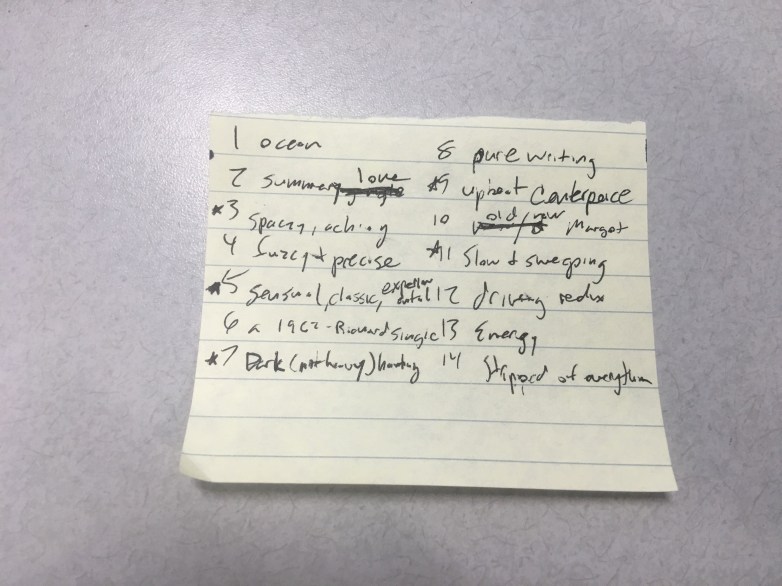 1 ocean
2 summery love
*3 spacey, aching
4 fuzzy + precise
*5 sensual, classic,
6 a 1962 - Richard single
*7 Dark (not heavy) haunting
8 pure writing
*9 upbeat Centerpiece
10 old/new Margot
*11 Slow + sweeping
12 driving redux
13 Energy
14 Stripped of everything